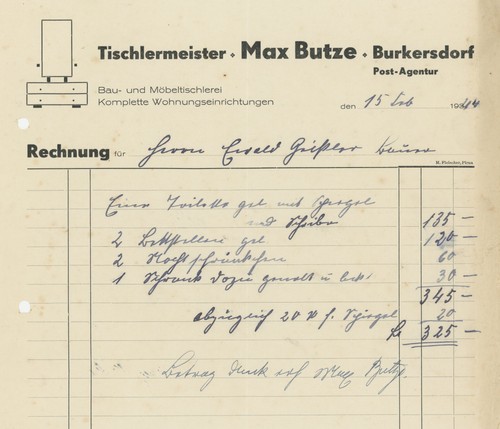 Tischlermeister • Max Butze • Burkersdorf
Post-Agentur
Bau- und Möbeltischlerei
Komplette Wohnungseinrichtungen
den 15 Feb 1944
Rechnung für Herrn Ewald Geißler Bauer
Eine Toilette gel mit Spiegel
und Scheibe 135 —
2 Bettstellen gel 120 —
2 Nachtschränkchen 60
1 Schrank dazu gemalt u lack. 30 —
345 —
abzüglich 20 M f. Spiegel 20
325 —
Betrag dank erh Max Butze